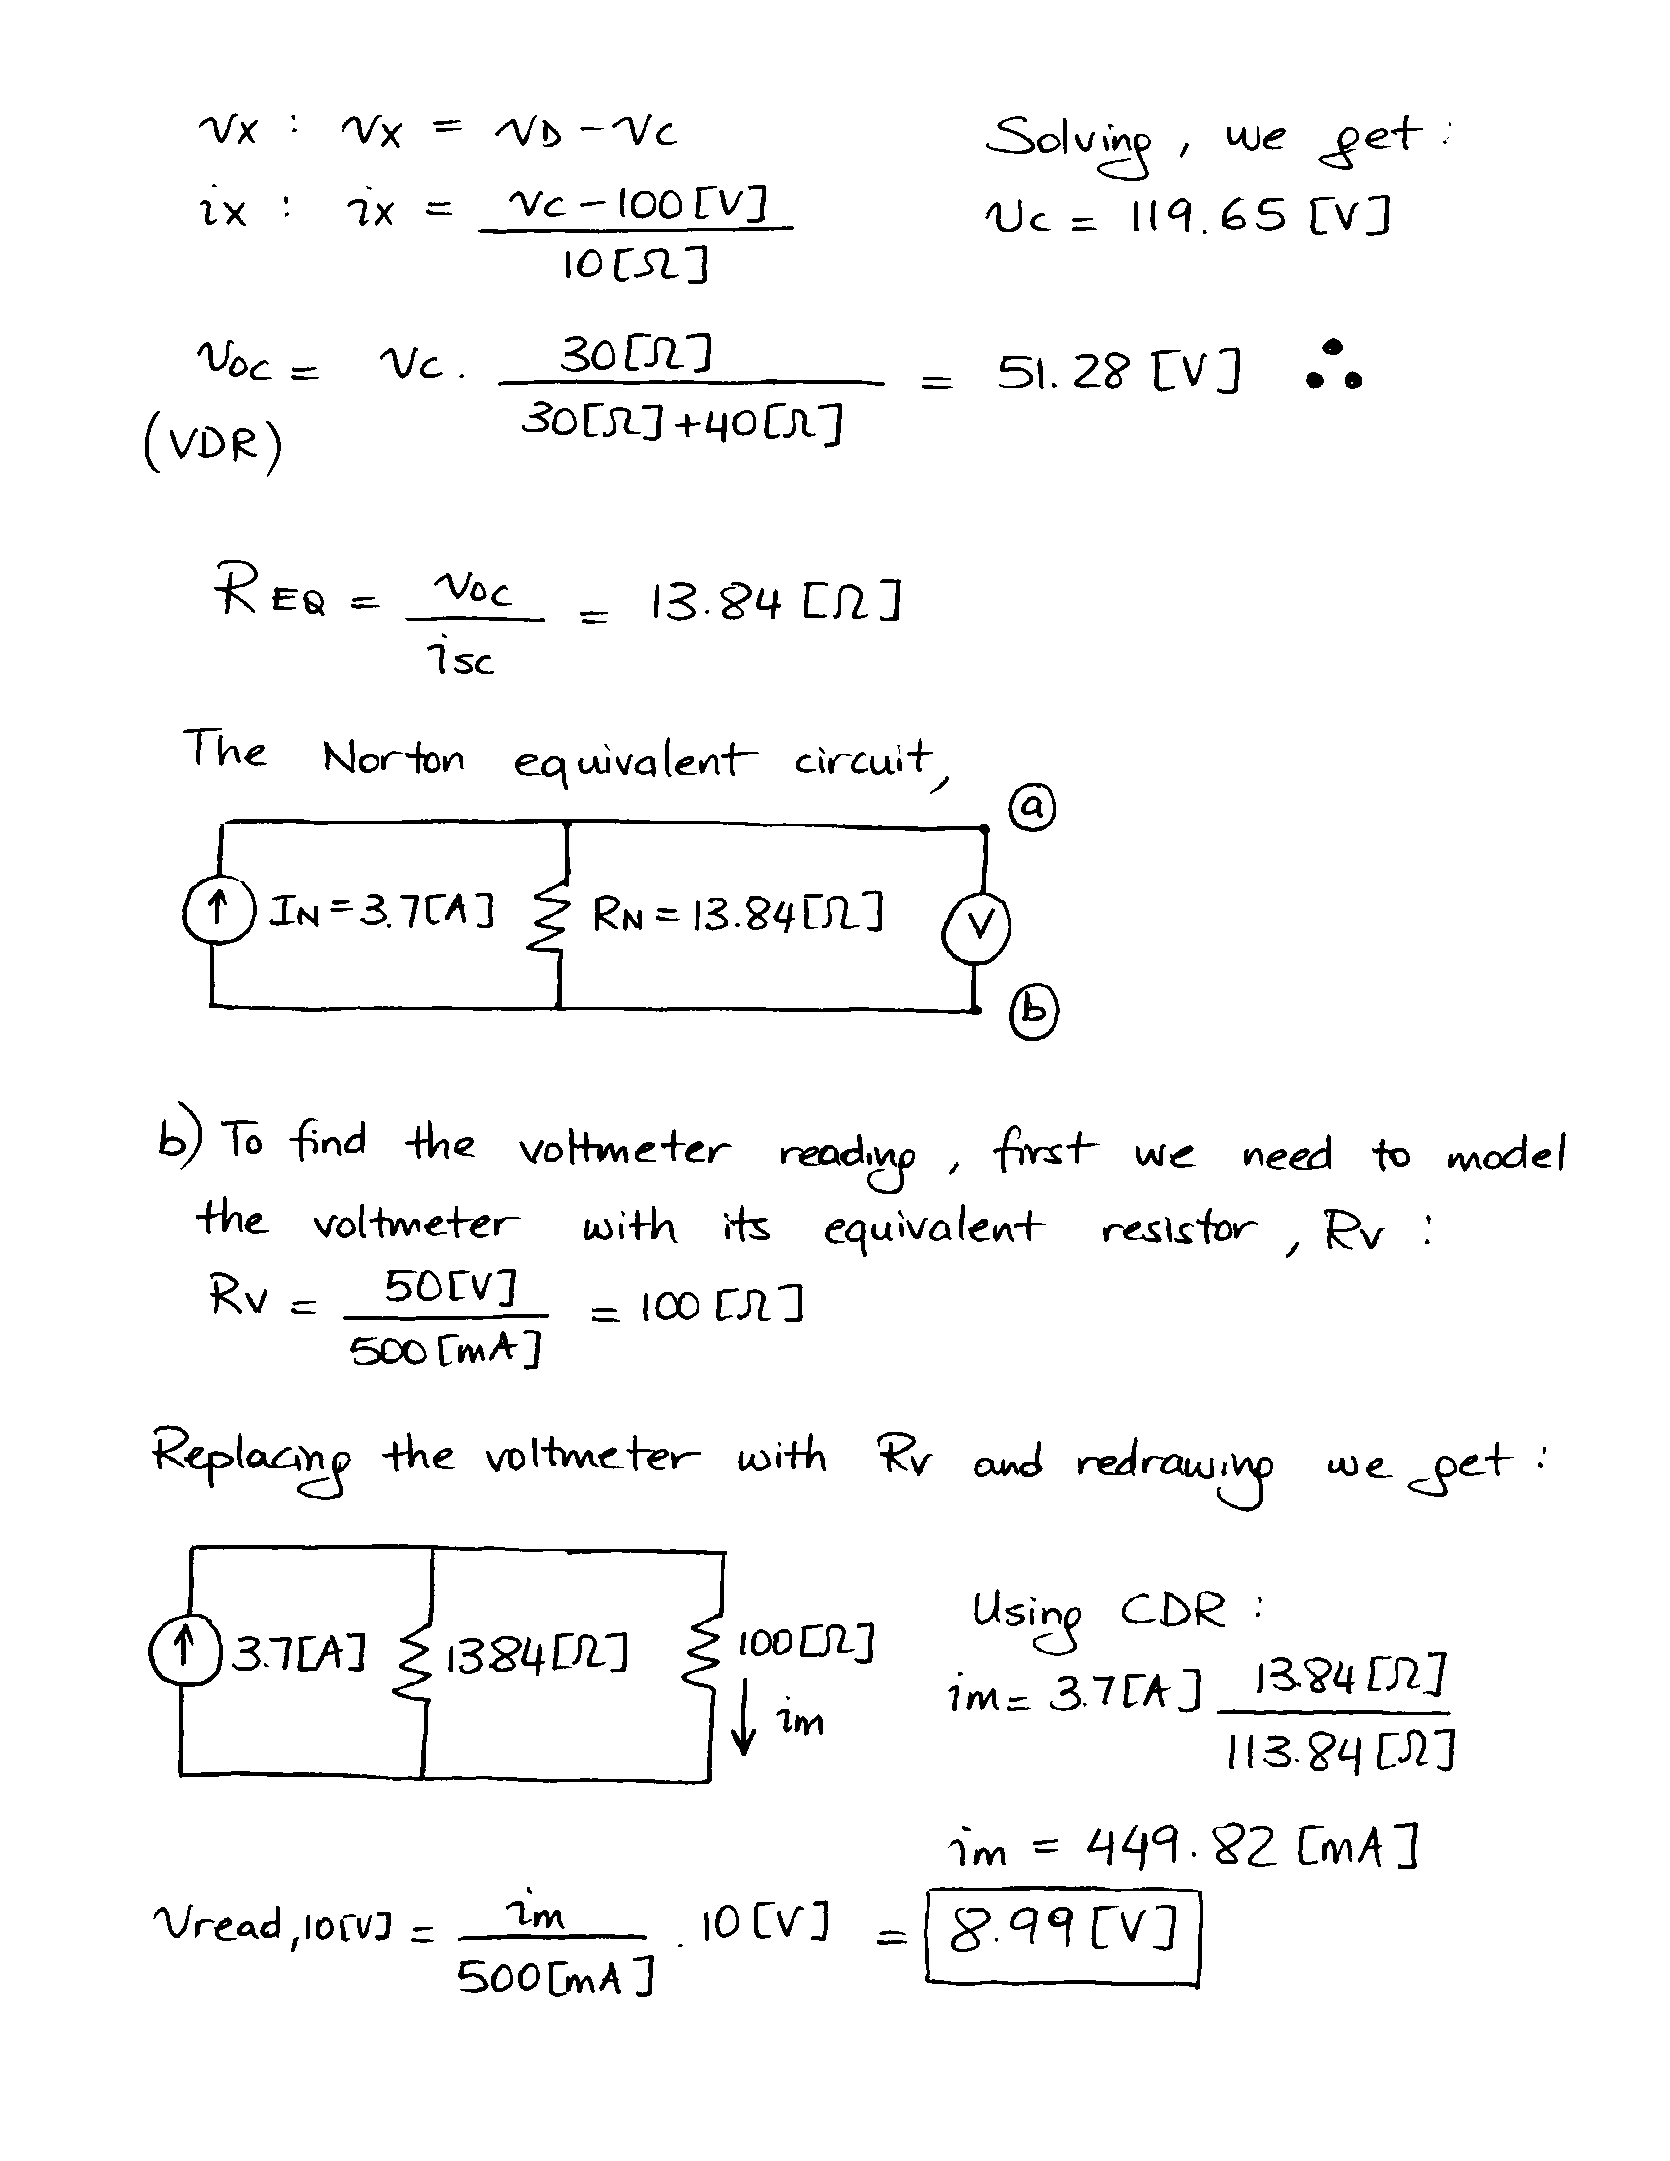 vX : vX = vD - vC
iX : iX = vC - 100[V] / 10[Ω]
Solving, we get:
vC = 119.65 [V]
vOC = vC . 30[Ω] / 30[Ω]+40[Ω] = 51.28 [V] ∴
(VDR)
REQ = vOC / iSC = 13.84 [Ω]
The Norton equivalent circuit,
a
IN = 3.7[A]
RN = 13.84[Ω]
V
b
b) To find the voltmeter reading, first we need to model
the voltmeter with its equivalent resistor, Rv :
RV = 50[V] / 500[mA] = 100 [Ω]
Replacing the voltmeter with Rv and redrawing we get :
3.7[A]
13.84[Ω]
100[Ω]
im
Using CDR :
im = 3.7[A] 13.84[Ω] / 113.84[Ω]
im = 449.82 [mA]
Vread,10[V] = im / 500[mA] . 10[V] = 8.99[V]